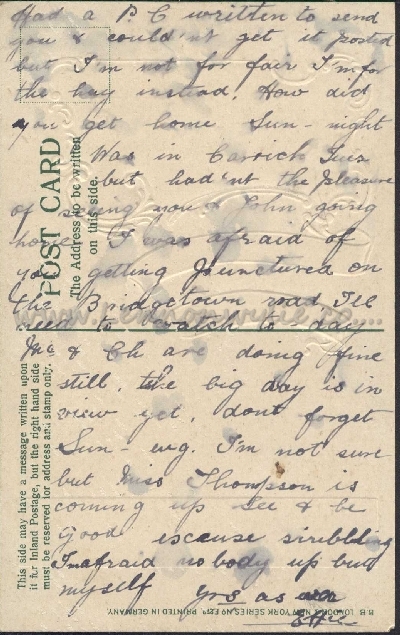 Had a P C written to send
you & could'nt get it posted
but I'm not for fair I'm for
the hay instead. How did
you get home Sun- night
Was in Carrick Tues
but had'nt the pleasure
of seeing you & John going
home. I was afraid of
you getting punctured on
the Bridgetown road I'll
need to watch to day
Mc & Ch are doing fine
still. the big day is in
view yet, dont forget
Sun- evg. I'm not sure
but Miss Thompson is
coming up See & be
Good escause scribbling
I'm afraid no body up but
myself Yrs as ever
Effie
POST CARD
The Address to be written
on this side.
This side may have a message written upon
it for Inland Postage, but the right hand side
must be reserved for address and stamp only.
B.B. LONDON & NEW YORK SERIES NO PRINTED IN GERMANY